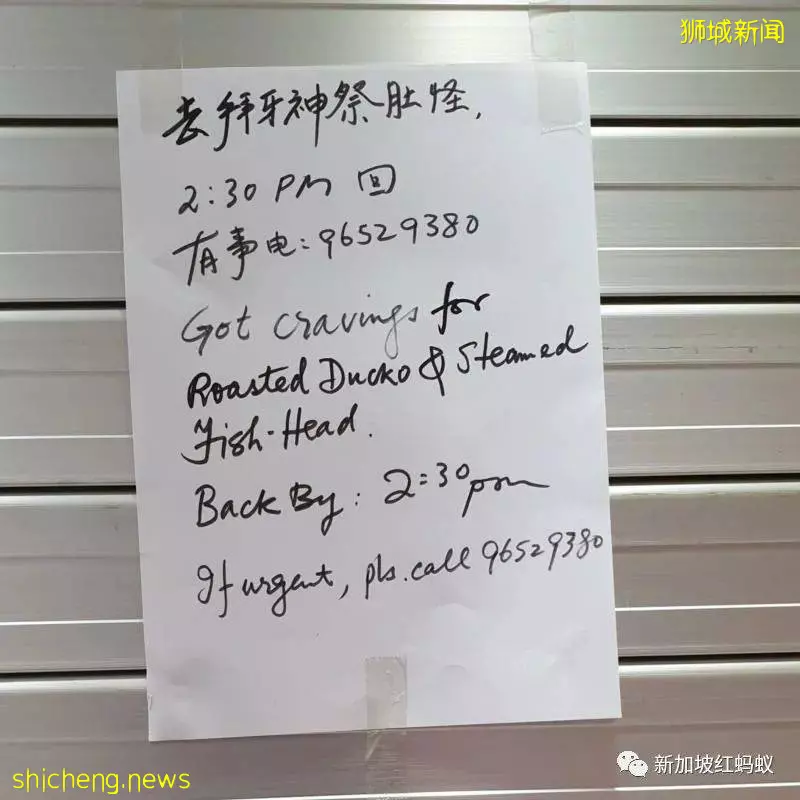 狮城新闻
去拜牙神祭肚怪,
2:30 PM 回
有事电:96529380
Got cravings for
Roasted Ducko & Steamed
Fish-Head.
Back By: 2:30pm
If urgent, pls. call 96529380
新加坡红蚂蚁
shicheng.news